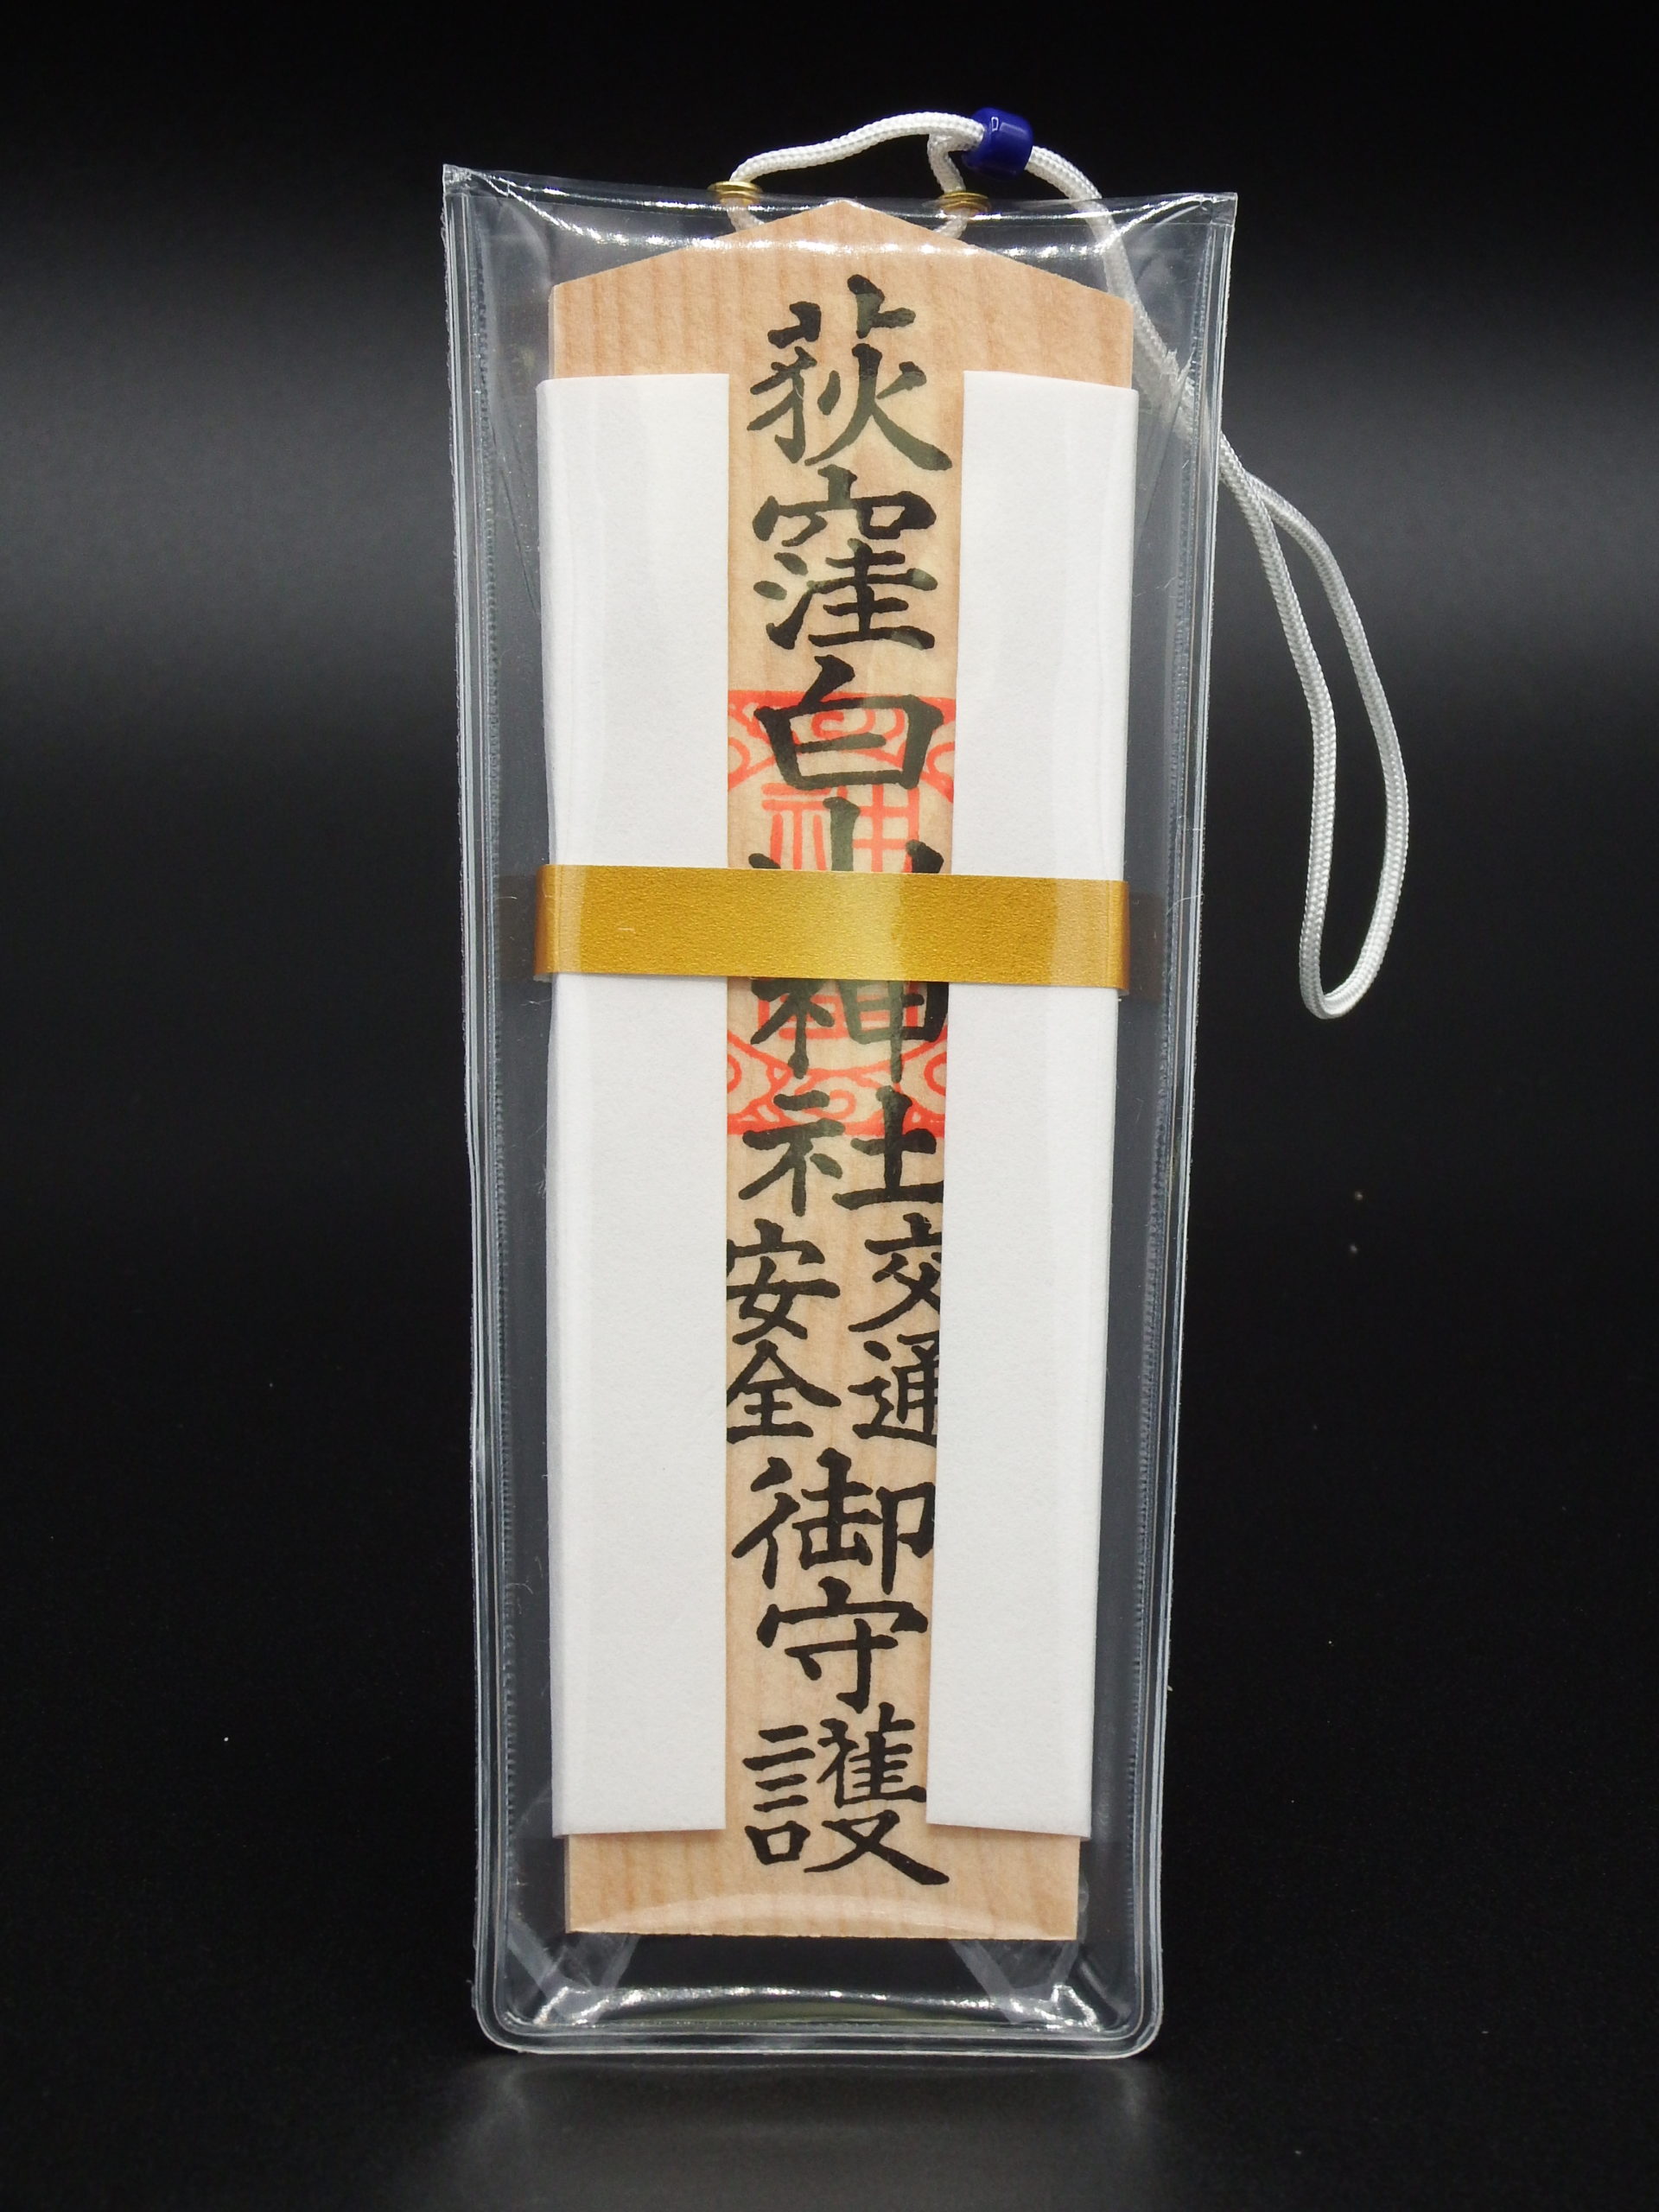 荻窪白山神社
交通
安全
御守護
神